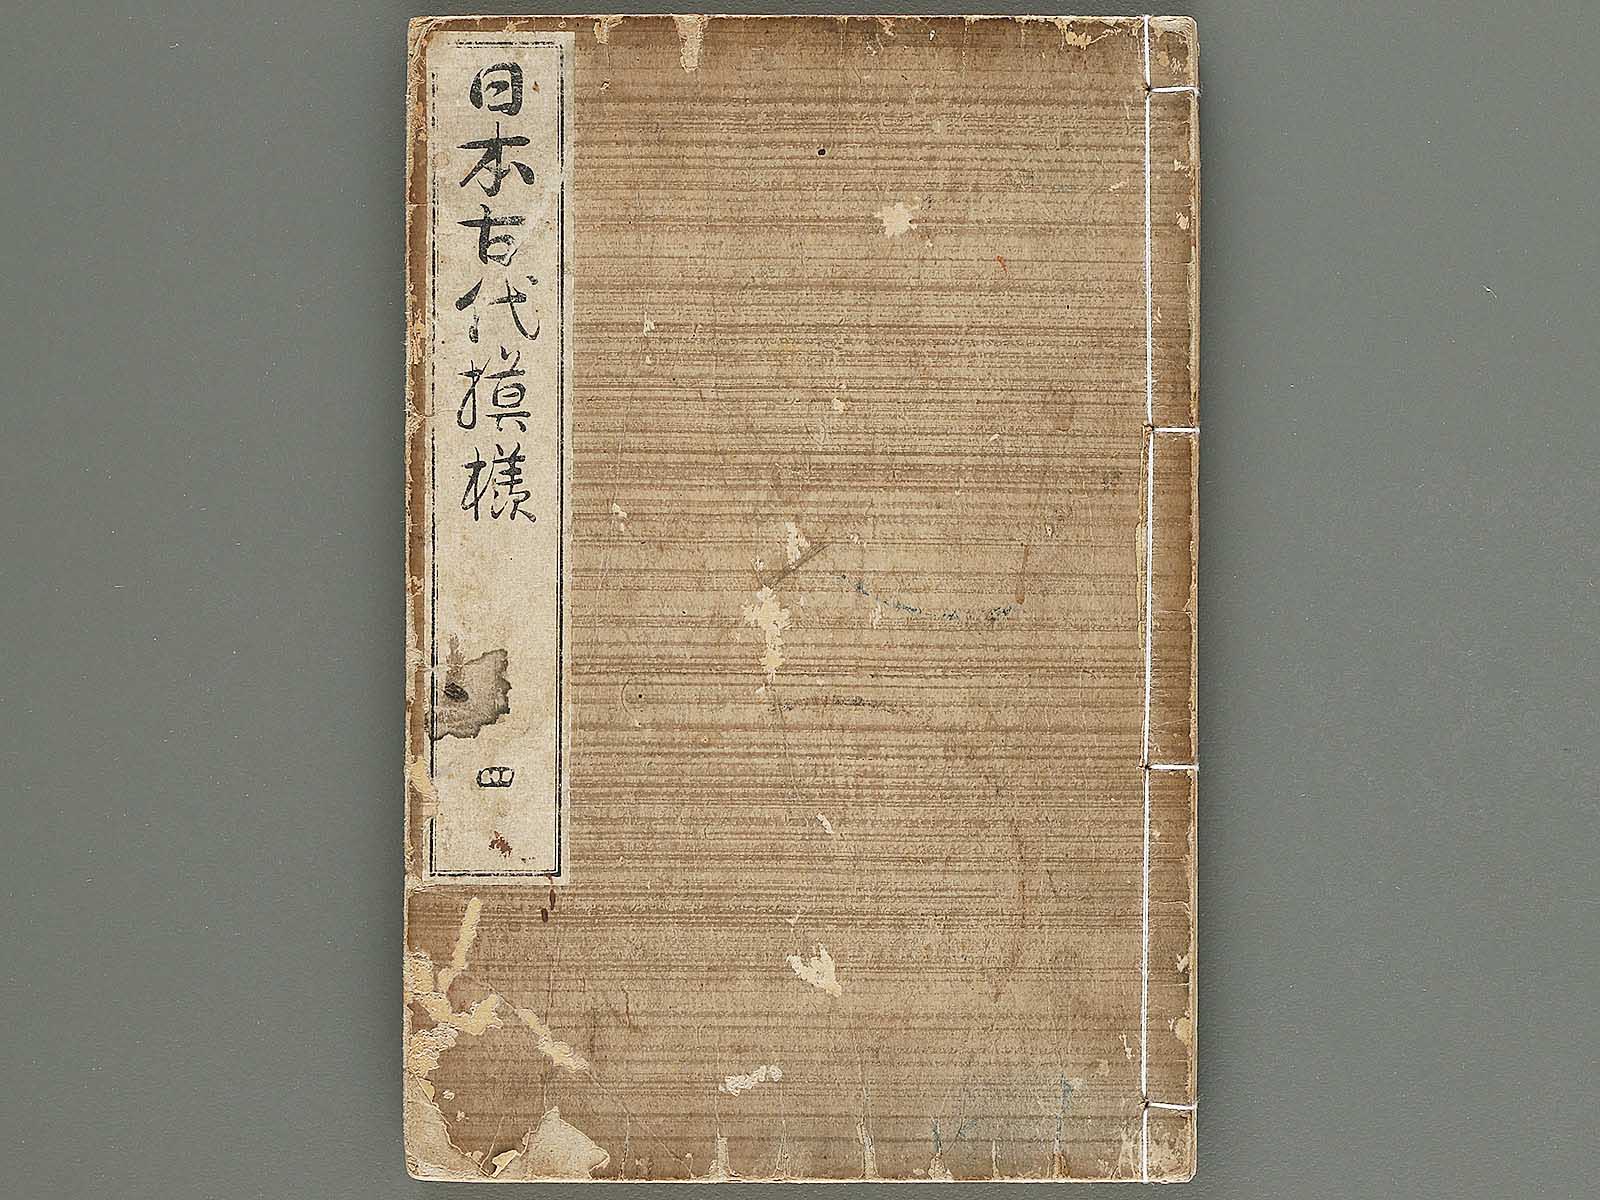 日本古代摸様
四